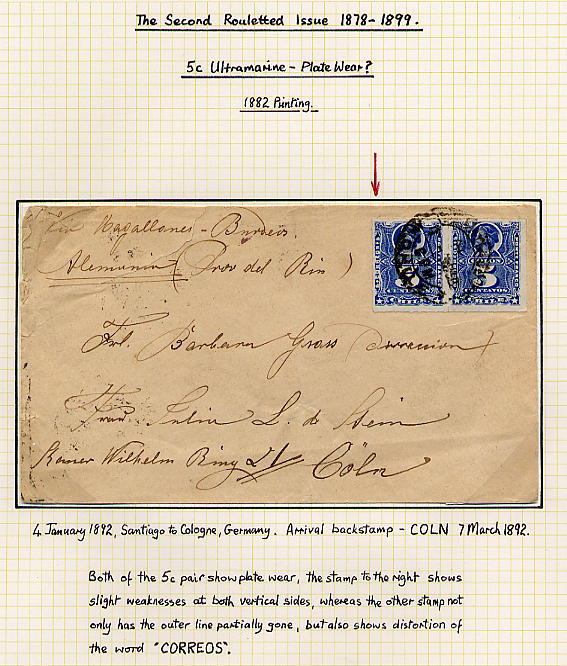 The Second Rouletted Issue 1878-1899.
5c Ultramarine - Plate Wear?
1882 Printing.
Via Magallanes - Burdeos.
Alemania (Prov del Rin)
Frl. Barbara Grass
Frau Julia L. de Stein
Kaiser Wilhelm Ring 21 Cöln
CENTAVOS
CENTAVOS
4 January 1892, Santiago to Cologne, Germany. Arrival backstamp - COLN 7 March 1892.
Both of the 5c pair show plate wear, the stamp to the right shows
slight weaknesses at both vertical sides, whereas the other stamp not
only has the outer line partially gone, but also shows distortion of
the word "CORREOS".